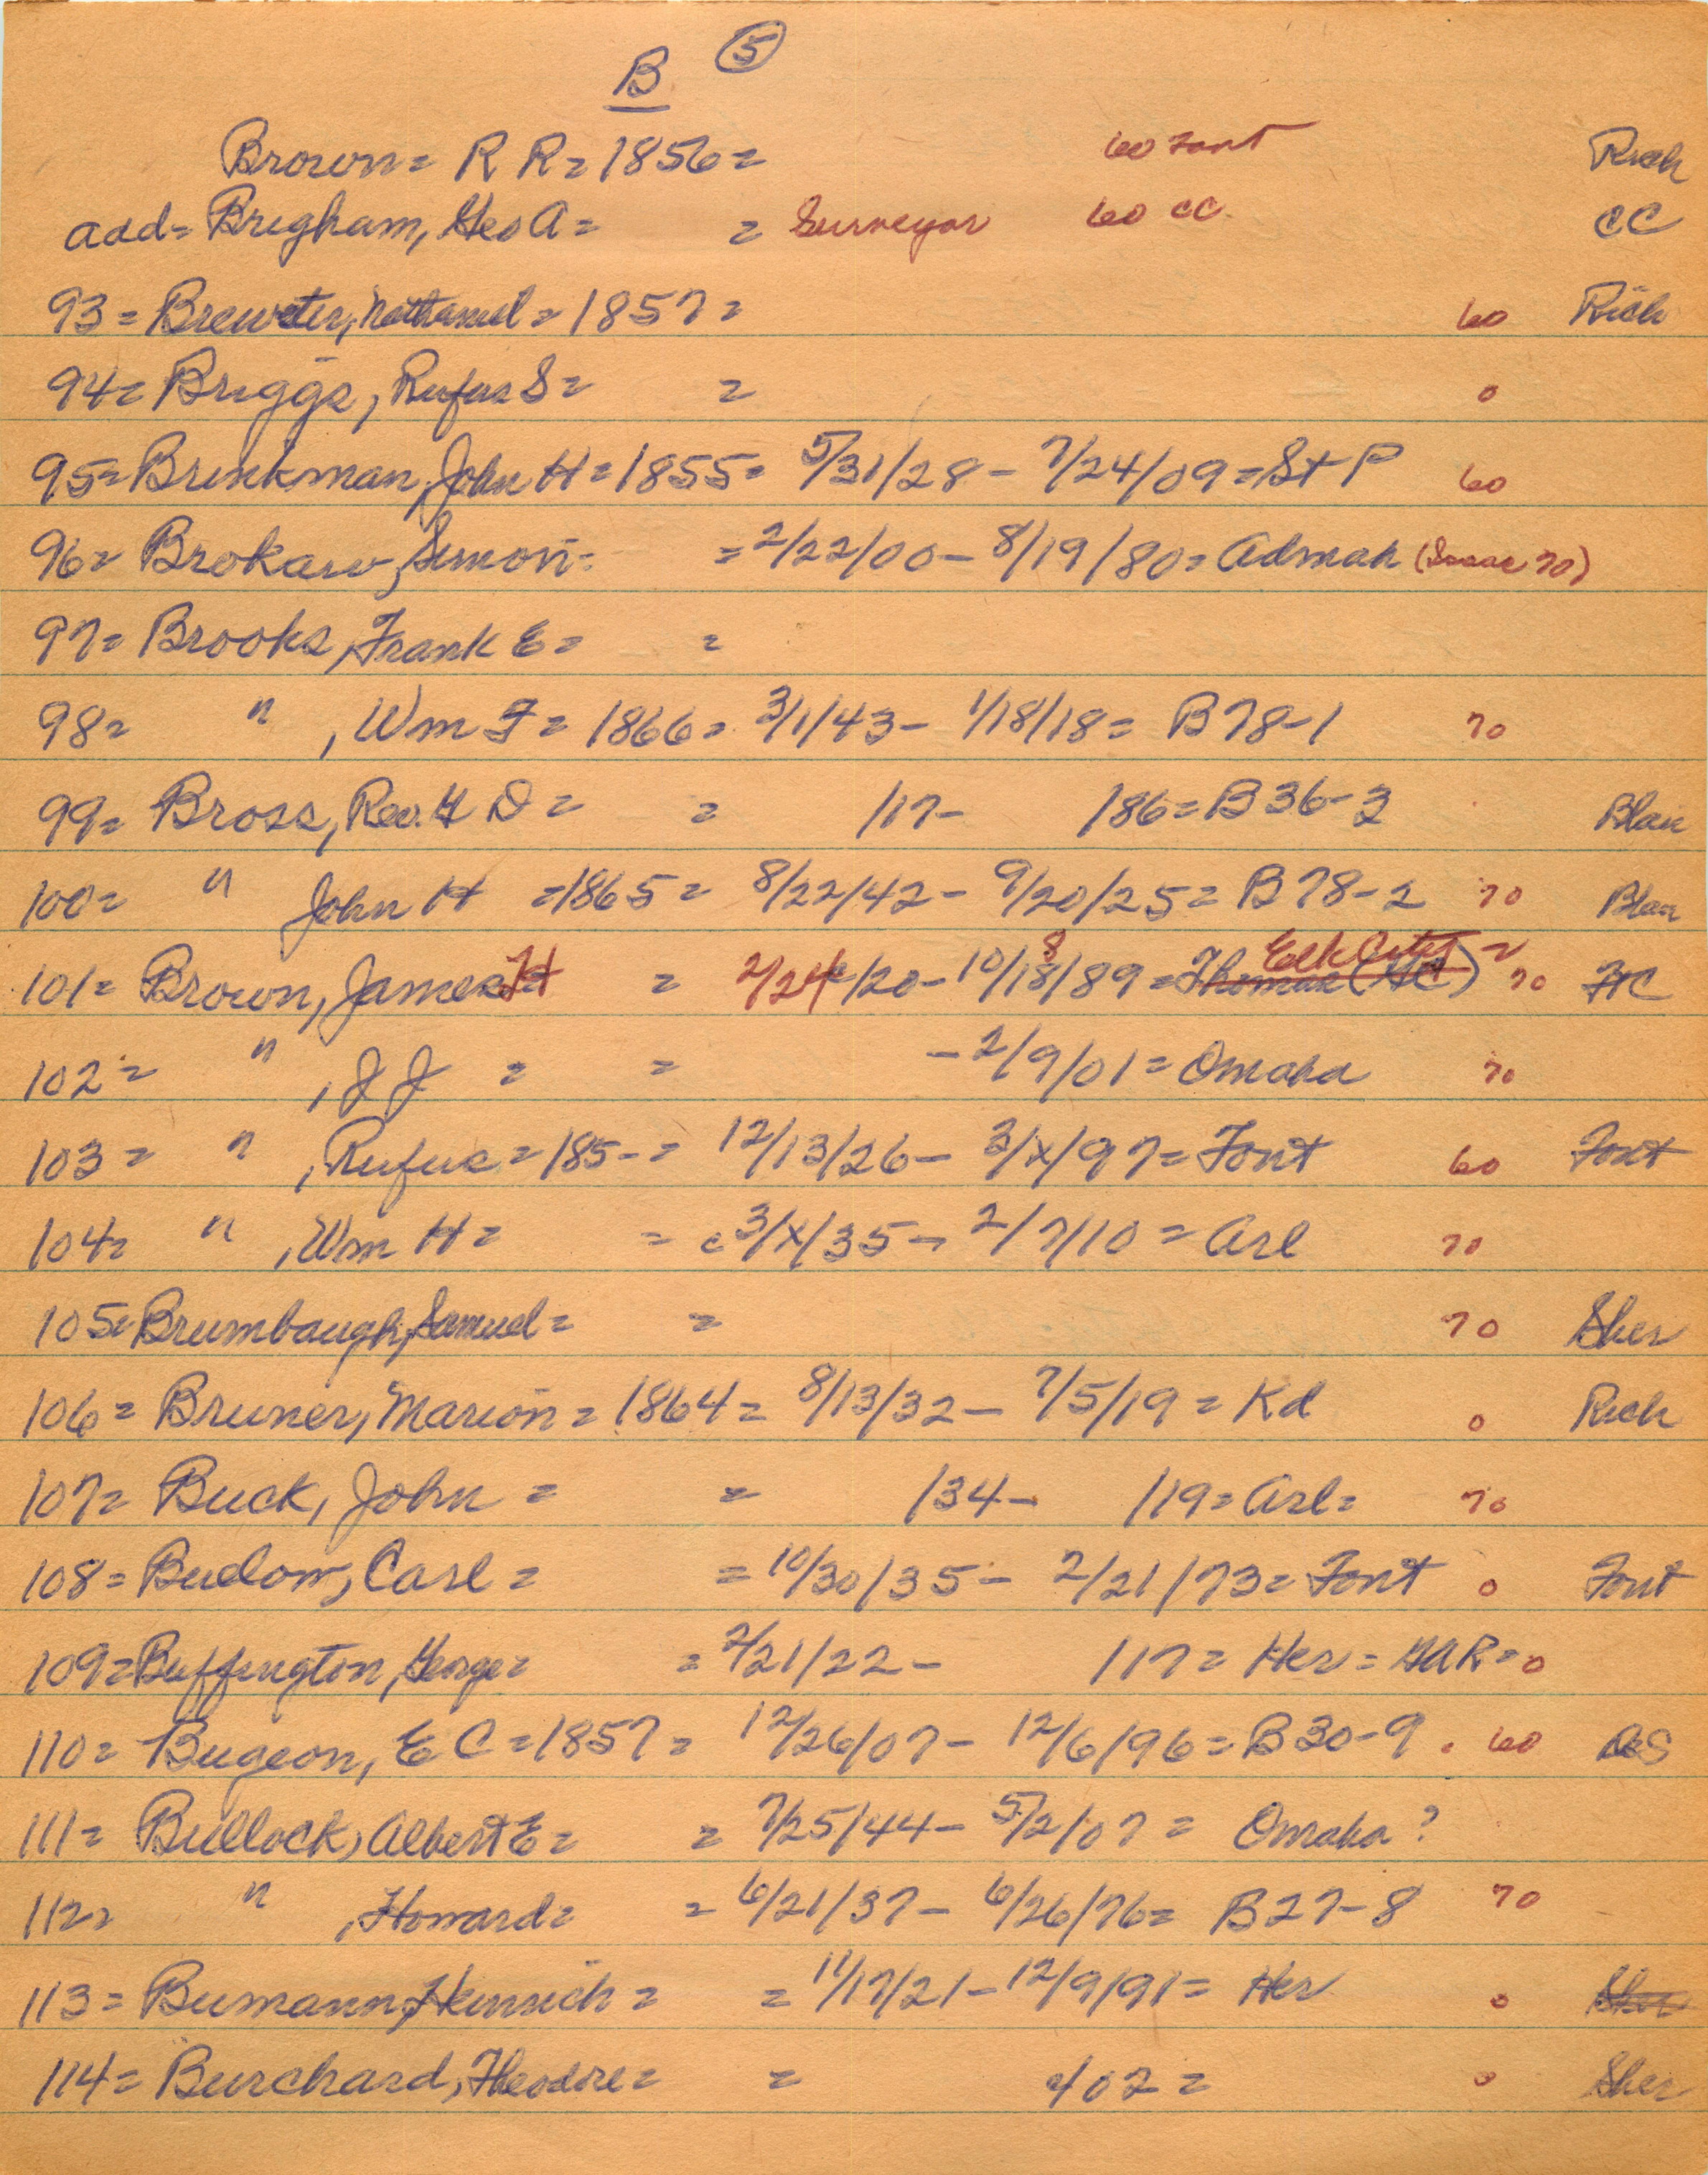 B (5)
Brown = R R = 1856 = 60 Font Rich
add = Brigham, Geo A = = Surveyor 60 CC CC
93 = Brewster, Nathaniel = 1857 = 60 Rich
94 = Briggs, Rufus S = = 0
95 = Brinkman, John H = 1855 = 5/31/28 - 7/24/09 = St P 60
96 = Brokaw, Simon = = 2/22/00 - 8/19/80 = Admah (Isaac 70)
97 = Brooks, Frank E = =
98 = " , Wm F = 1866 = 3/1/43 - 1/18/18 = B78-1 70
99 = Bross, Rev. H D = = /17 - /86 = B36-3 Blair
100 = " John H = 1865 = 8/22/42 - 9/20/25 = B78-2 70 Blair
101 = Brown, James H = 2/24/20 - 10/18/89 = Thomas (HC) Elk City = 70 HC
102 = " , J J = = - 2/9/01 = Omaha 70
103 = " , Rufus = 185- = 12/13/26 - 3/x/97 = Font 60 Font
104 = " , Wm H = = c3/x/35 - 2/7/10 = Arl 70
105 = Brumbaugh, Samuel = = 70 Sher
106 = Bruner, Marion = 1864 = 8/13/32 - 7/5/19 = Kd 0 Rich
107 = Buck, John = = /34 - /19 = Arl = 70
108 = Budow, Carl = = 10/30/35 - 2/21/73 = Font 0 Font
109 = Buffington, George = = 2/21/22 - /17 = Her = GAR = 0
110 = Bugeon, E C = 1857 = 12/26/07 - 12/6/96 = B30-9 . 60 DeS
111 = Bullock, Albert E = = 7/25/44 - 5/2/07 = Omaha ?
112 = " , Howard = = 6/21/37 - 6/26/76 = B27-8 70
113 = Bumann, Heinrich = = 11/17/21 - 12/9/91 = Her 0 Sher
114 = Burchard, Theodore = = /02 = 0 Sher